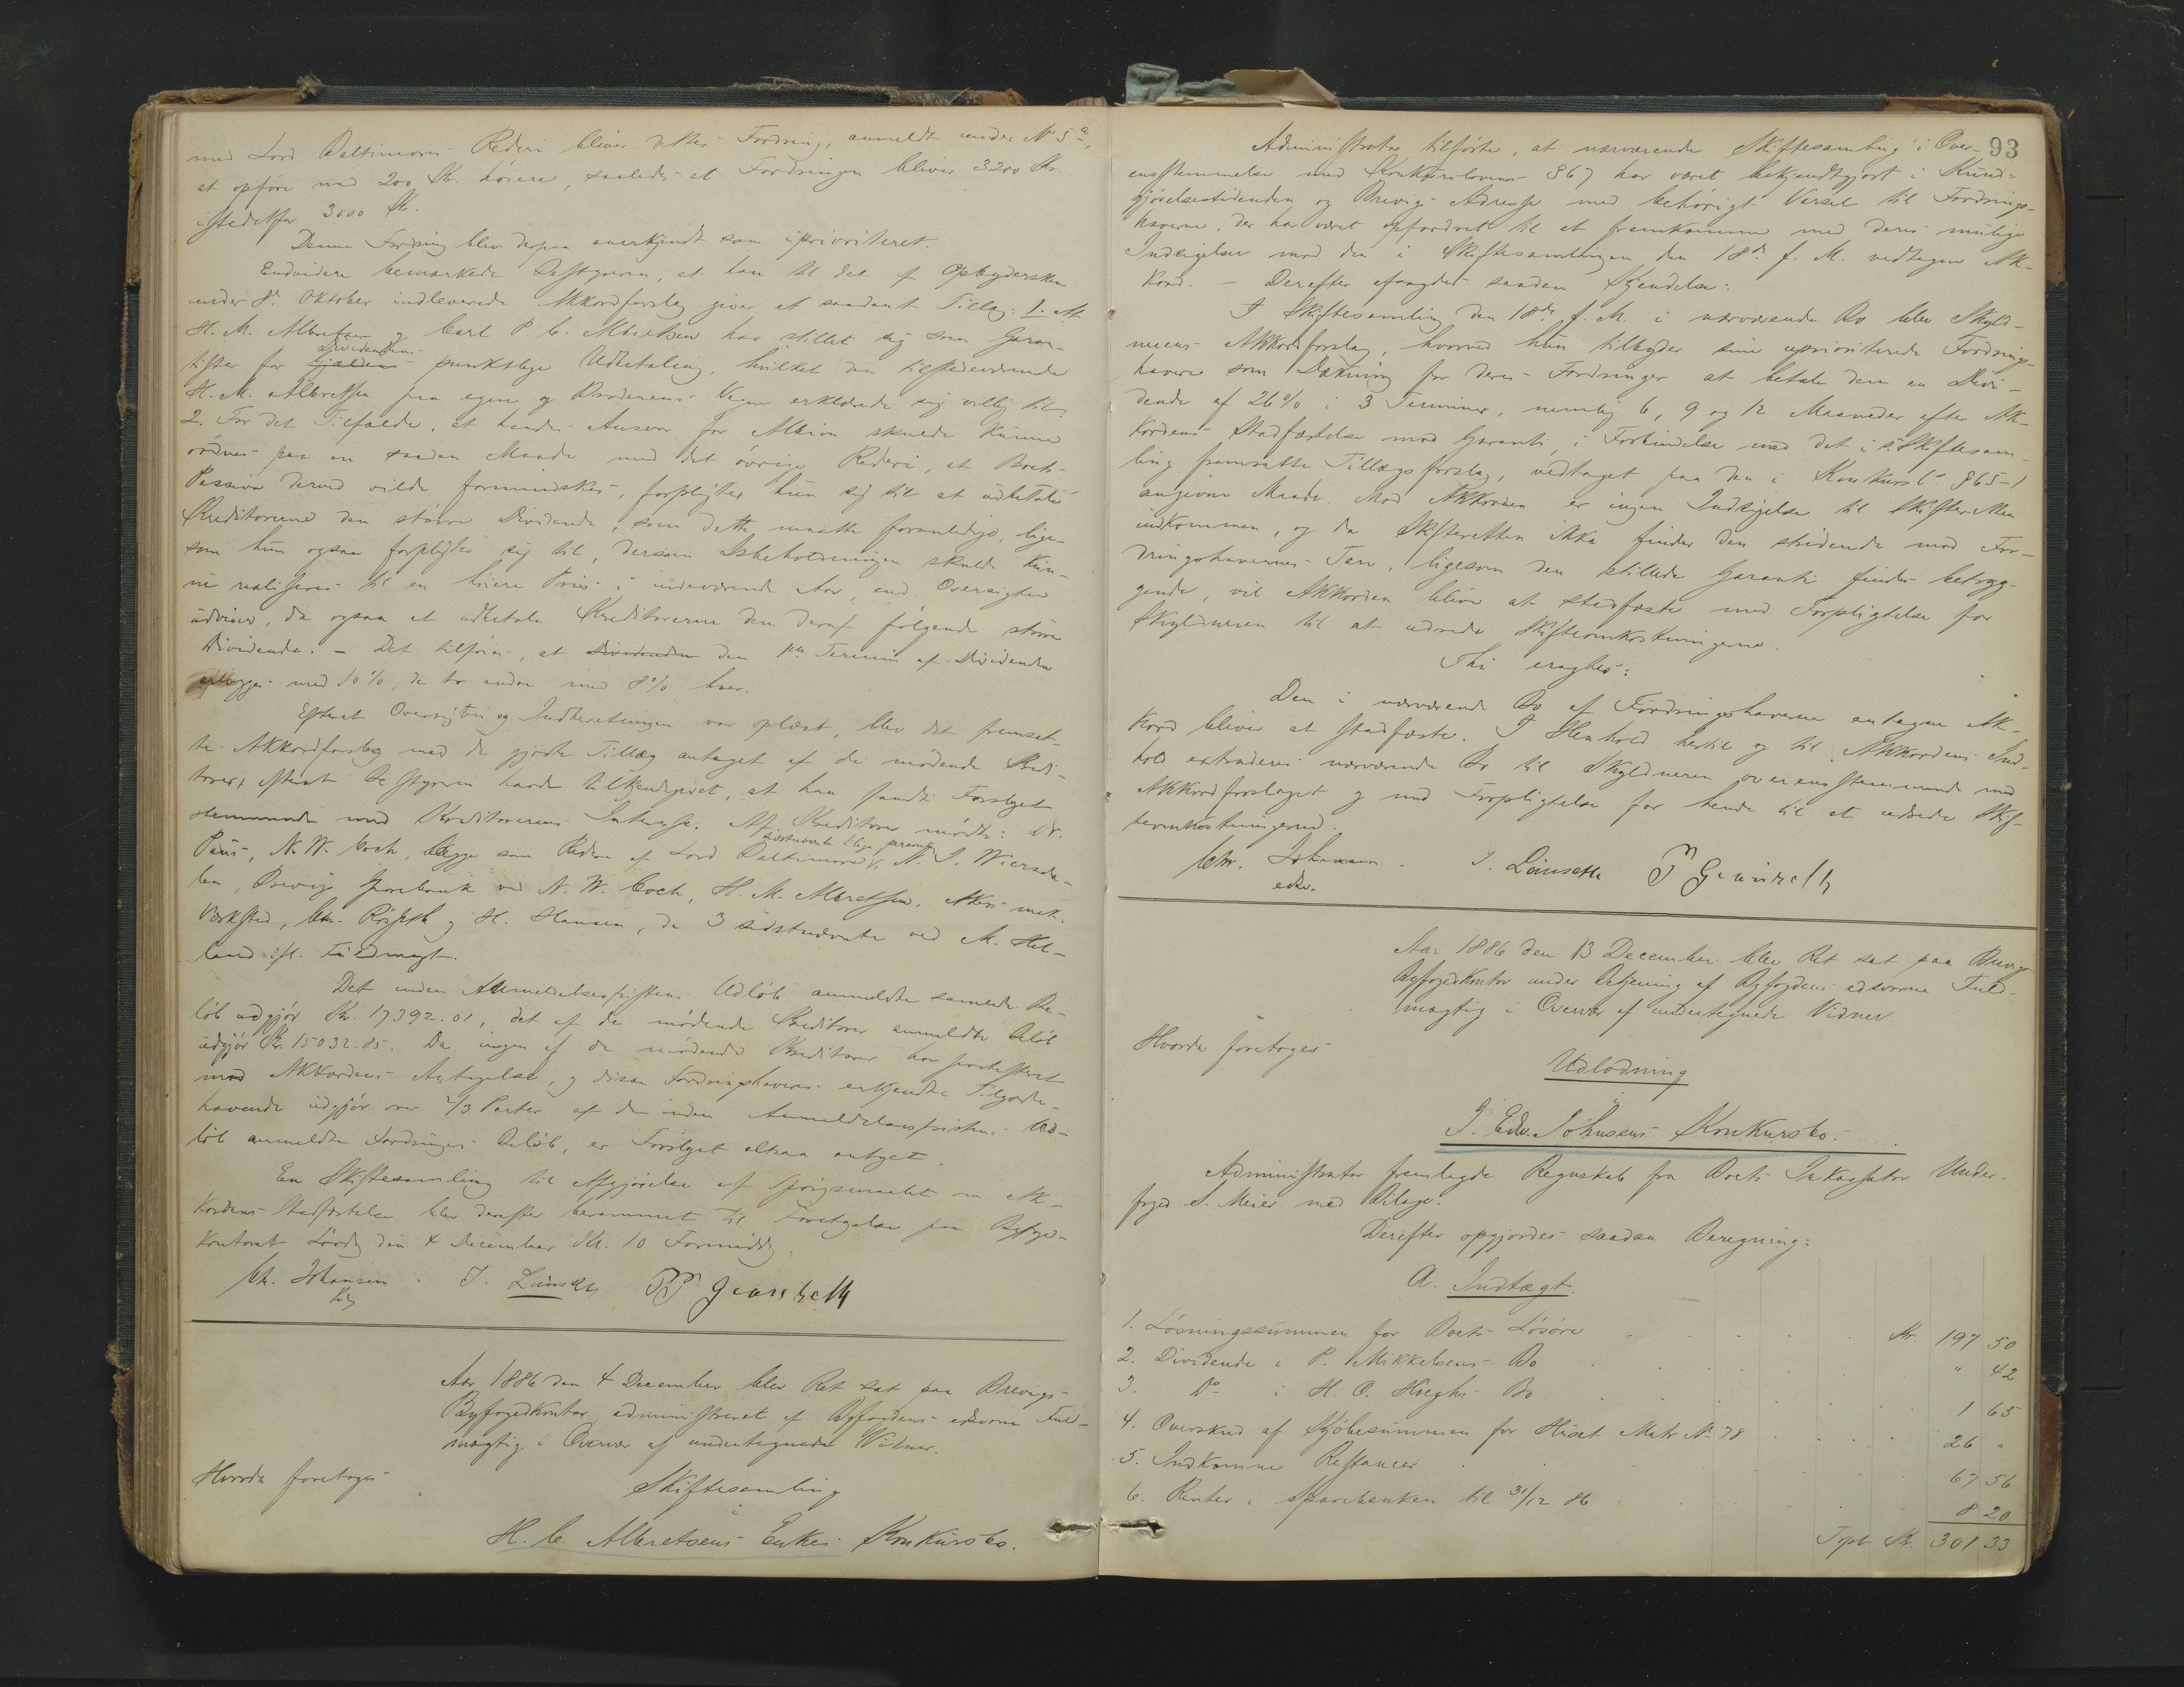 med Lord Baltimores Rederi bliver dettes Fordring, anmeldt under No 5a,
at opføre med 200 Kr. høiere, saaledes at Fordringen bliver 3200 Kr.
istedetfor 3000 Kr.
Denne Fordring blev derpaa anerkjendt som uprioriteret.
Endvidere bemærkede Bestyreren, at han til det af Opbydersken
under 8de Oktober indleverede Akkordforslag giver et saadant Tillæg: 1. At
H. M. Albretsen og Carl P. C. Albretsen har stillet sig som Garan-
tister for Dividendens punktlige Udbetaling, hvilket den tilstedeværende
H. M. Albretsen paa egne og Broderens Vegne erklærede sig villig til
2. For det Tilfælde, at hendes Ansvar for Albion skulde kunne
ordnes paa en saadan Maade med det øvrige Rederi, at Boets
Passiva derved vilde formindskes, forpligter hun sig til at udbetale
Kreditorerne den større Dividende, som dette maatte foranledige, lige-
som hun ogsaa forpligter sig til, dersom Isbeholdningen skulde kun-
ne realiseres til en høiere Pris i indeværende Aar, end Oversigten
udviser, da ogsaa at udbetale Kreditorerne den deraf følgende større
Dividende. – Det tilføies, at Dividenden den 1ste Termin af Dividenden
erlægges med 10%, de to andre med 8% hver.
Efterat Oversigten og Indberetningen var oplæst, blev det fremsat-
te Akkordforslag med de gjorte Tillæg antaget af de mødende Kredi-
torer, efterat Bestyreren havde tilkjendegivet, at han fandt Forslaget
stemmende med Kreditorernes Interesse. Af Kreditorer mødte: Chr.
Paus, N. W. Coch, begge som Redere af Lord Baltimore, sidstnævnte tillige personlig, N. J. Wiersda-
len, Brevig Sparebank ved N. W. Coch, H. M. Albretsen, Akers mek.
Værksted, Chr. Røsseth og H. Hansen, de 3 sidstnævnte ved M. Hel-
land ifl. Fuldmagt.
Det inden Anmeldelsesfristens Udløb anmeldte samlede Be-
løb udgjør Kr. 17392.01, det af de mødende Kreditorer anmeldte Beløb
udgjør Kr. 15032.85. Da ingen af de mødende Kreditorer har protesteret
mod Akkordens Antagelse, og disse Fordringshaveres erkjendte Tilgode-
havende udgjør over 2/3 Parter af de inden Anmeldelsesfristens Ud-
løb anmeldte Fordringers Beløb, er Forslaget altsaa antaget.
En Skiftesamling til Afgjørelse af Spørgsmaalet om Ak-
kordens Stadfæstelse blev derefter berammet til Foretagelse paa Byfoged-
kontoret Lørdag den 4 December Kl. 10 Formiddag.
Chr. Johansen
J. Lønseth
Aar 1886 den 4 December blev Ret sat paa Brevigs
Byfogedkontor, administreret af Byfogdens edsvorne Fuld-
mægtig i Overvær af undertegnede Vidner.
Hvorda foretoges
Skiftesamling
i
H. C. Albretsens Enkes Konkursbo.
93
Administrator tilførte, at nærværende Skiftesamling i Over-
ensstemmelse med Konkurslovens §67 har været bekjendtgjort i Kund-
gjørelsestidenden og Brevigs Adresse med behørigt Varsel til Fordrings-
haverne, der har været opfordret til at fremkomme med deres mulige
Indsigelser mod den i Skiftesamlingen den 18de f. M. vedtagne Ak-
kord. – Derefter afsagdes saaden Kjendelse:
I Skiftesamling den 18de f. M. i nærværende Bo blev Skyld-
nerens Akkordforslag, hvorved hun tilbyder sine uprioriterede Fordrings-
havere som Dækning for deres Fordringer at betale dem en Divi-
dende af 26% i 3 Terminer, nemlig 6, 9 og 12 Maaneder efter Ak-
kordens Stadfæstelse mod Garanti, i Forbindelse med det i s. Skiftesam-
ling fremsatte Tillægsforslag, vedtaget paa den i Konkursl. §65-1
angivne Maade. Mod Akkorden er ingen Indsigelse til Skifteretten
indkommen, og da Skifteretten ikke finder den stridende mod For-
dringshavernes Tarv, ligesom den stillede Garanti findes betryg-
gende, vil Akkorden blive at stadfæste med Forpligtelse for
Skyldneren til at udrede Skifteomkostningerne.
Thi eragtes:
Den i nærværende Bo af Fordringshaverne antagne Ak-
kord bliver at stadfæste. I Henhold hertil og til Akkordens Ind-
hold extraderes nærværende Bo til Skyldneren overensstemmende med
Akkordforslaget og med Forpligtelse for hende til at udrede Skif-
teomkostningerne.
Chr. Johansen
edsv.
J. Lønseth
Aar 1886 den 13 December blev Ret sat paa Brevigs
Byfogedkontor under Betjening af Byfogdens edsvorne Fuld-
mægtig i Overvær af undertegnede Vidner.
Hvorda foretoges
Udlodning
i
J. Edv. Johnsens Konkursbo.
Administrator fremlagde Regnskab fra Boets Inkassator Under-
foged S. Meier med Bilage.
Derefter opgjordes saadan Beregning:
A. Indtægt.
1. Løsningssummen for Boets Løsøre Kr. 197 50
2. Dividende i P. Mikkelsens Bo " 42
3. Do i H. O. Høeghs Bo 1 65
4. Overskud af Kjøbesummen for Huset Matr No 78 26 "
5. Indkomne Restancer 67 56
6. Renter i Sparebanken til 31/12 86 8 20
Tapt Kr. 301 33